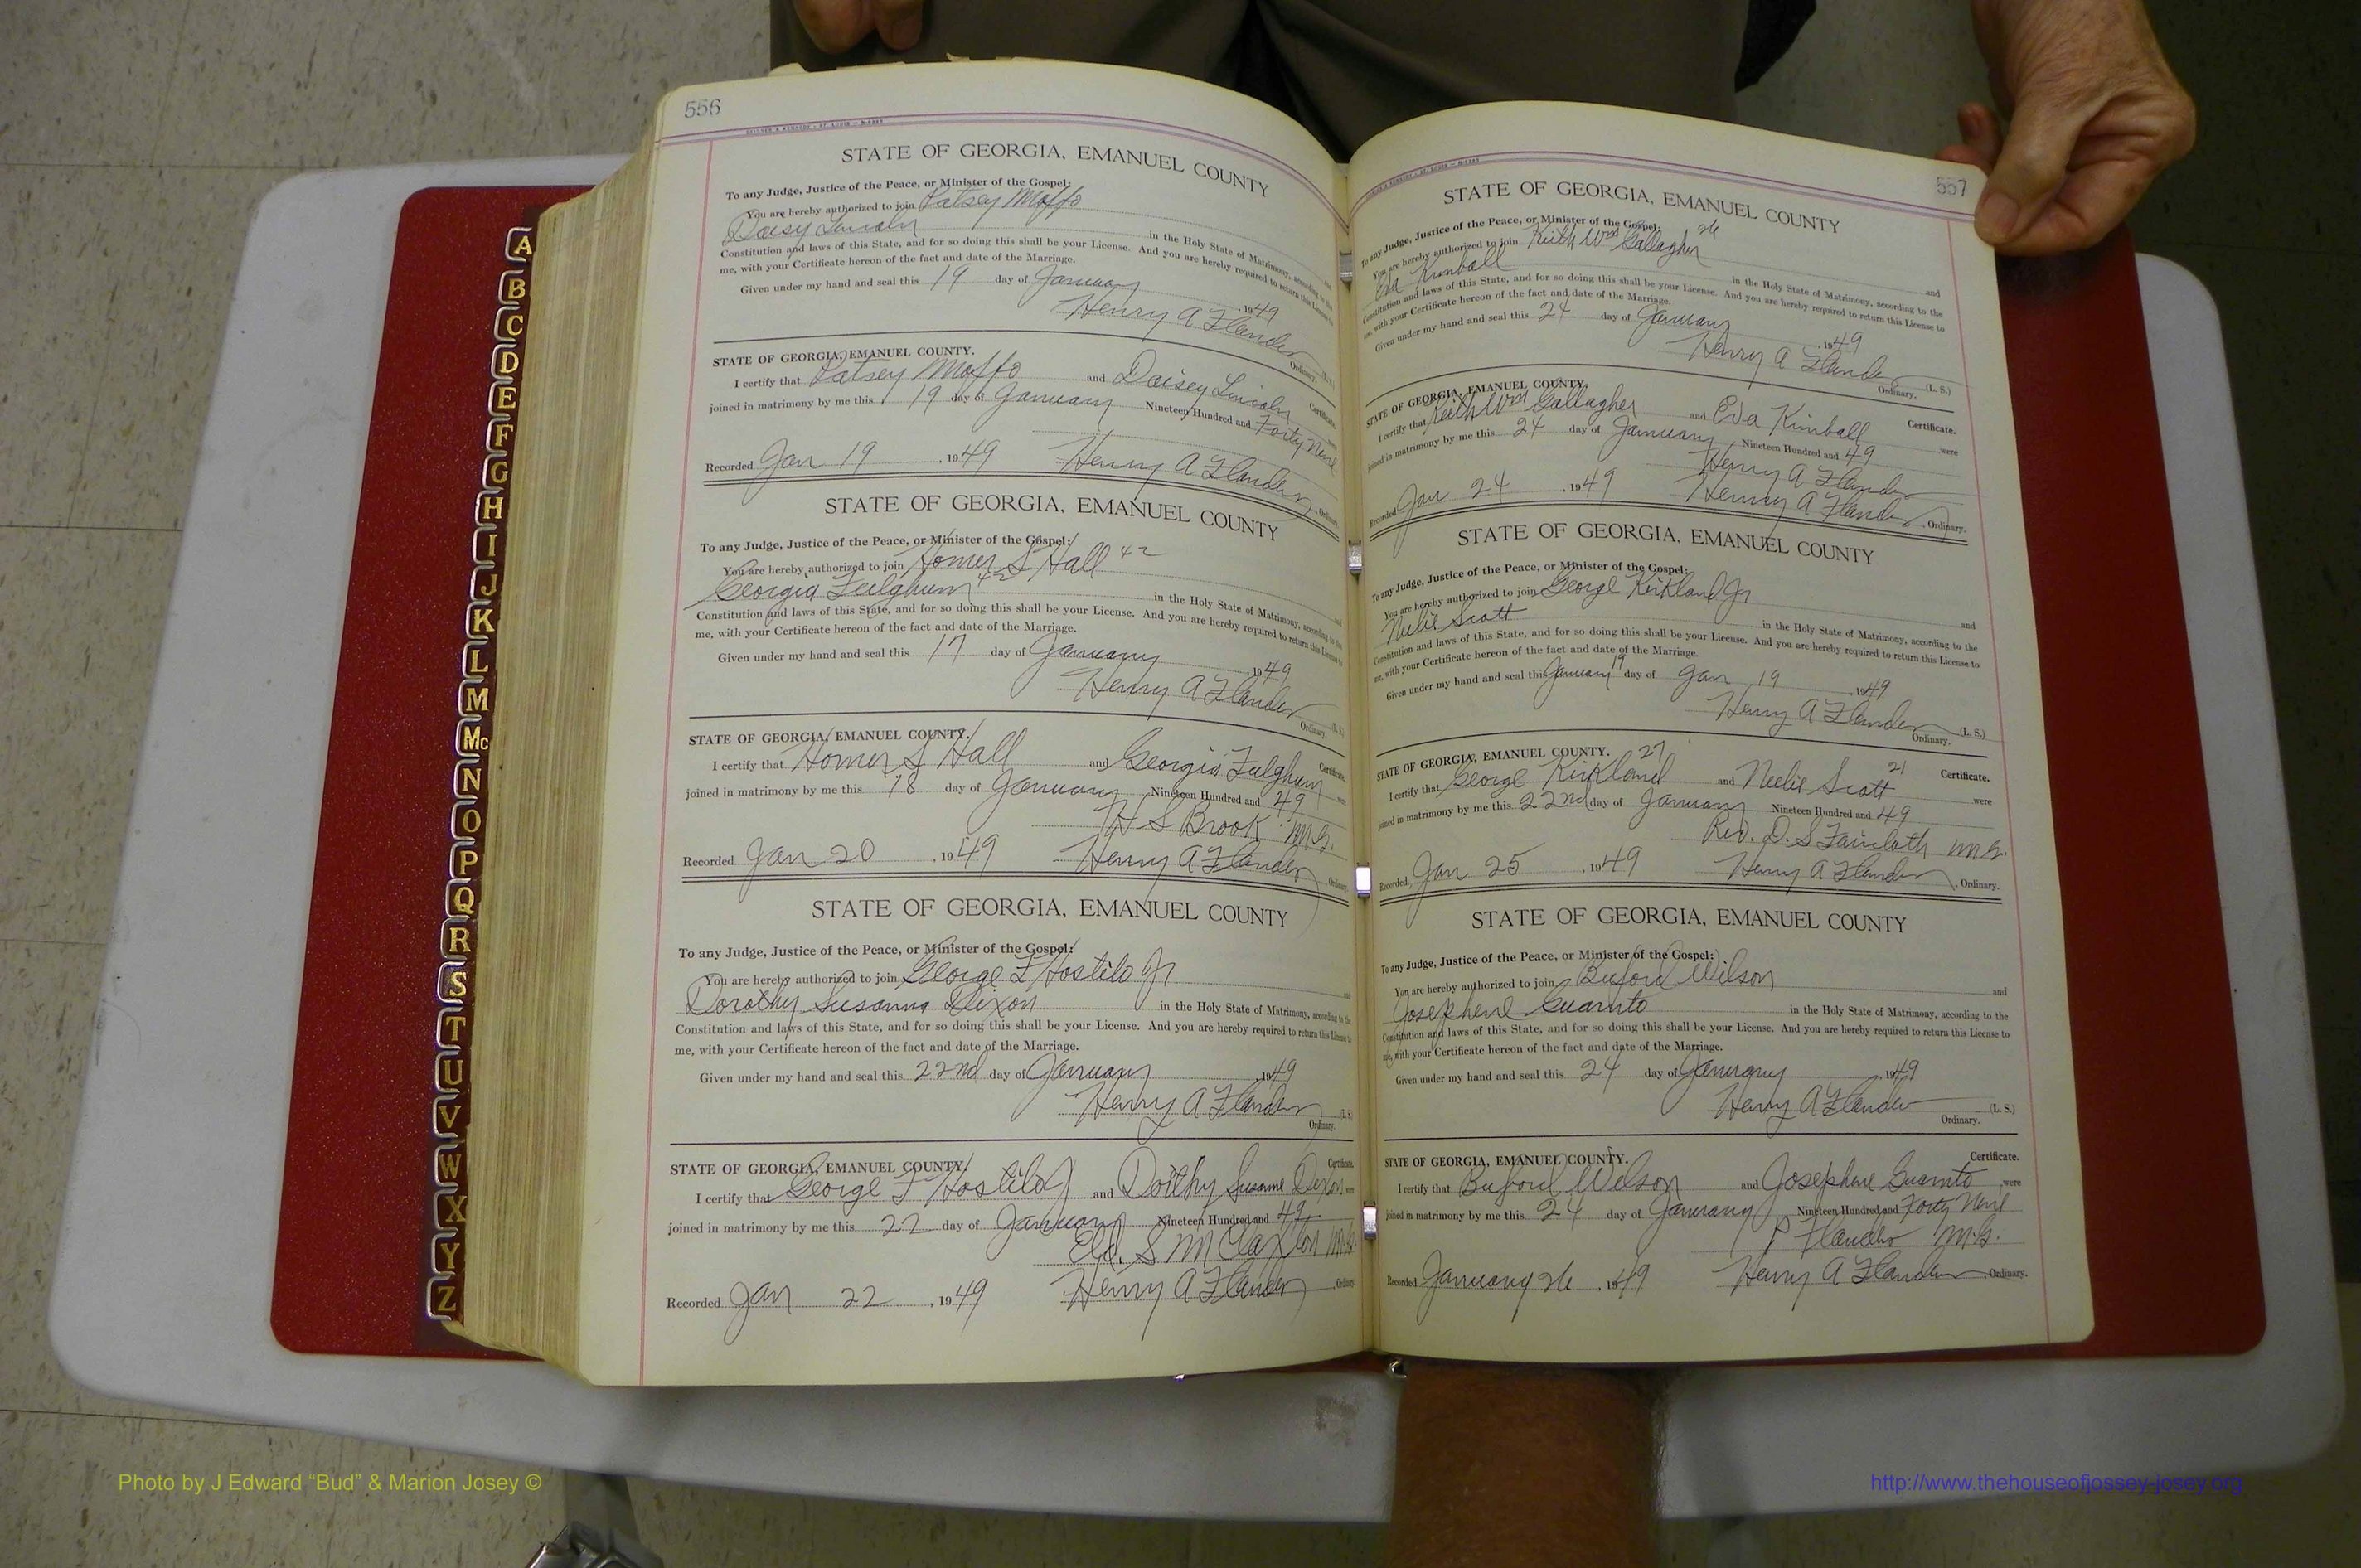 556
STATE OF GEORGIA, EMANUEL COUNTY
To any Judge, Justice of the Peace, or Minister of the Gospel:
You are hereby authorized to join Patsey Moffo
and
Daisy Lincoln in the Holy State of Matrimony, according to the
Constitution and laws of this State, and for so doing this shall be your License. And you are hereby required to return this License to
me, with your Certificate hereon of the fact and date of the Marriage.
Given under my hand and seal this 19 day of January, 1949
Henry A Flanders (L. S.)
Ordinary.
STATE OF GEORGIA, EMANUEL COUNTY. Certificate.
I certify that Patsey Moffo and Daisey Lincoln were
joined in matrimony by me this 19 day of January Nineteen Hundred and Forty Nine
Recorded Jan 19, 1949 Henry A Flanders, Ordinary.
STATE OF GEORGIA, EMANUEL COUNTY
To any Judge, Justice of the Peace, or Minister of the Gospel:
You are hereby authorized to join Homer S Hall 42 and
Georgia Fulghum 42 in the Holy State of Matrimony, according to the
Constitution and laws of this State, and for so doing this shall be your License. And you are hereby required to return this License to
me, with your Certificate hereon of the fact and date of the Marriage.
Given under my hand and seal this 17 day of January, 1949
Henry A Flanders (L. S.)
Ordinary.
STATE OF GEORGIA, EMANUEL COUNTY. Certificate.
I certify that Homer S Hall and Georgia Fulghum were
joined in matrimony by me this 18 day of January Nineteen Hundred and 49
H S Brook M.G.
Recorded Jan 20, 1949 Henry A Flanders, Ordinary.
STATE OF GEORGIA, EMANUEL COUNTY
To any Judge, Justice of the Peace, or Minister of the Gospel:
You are hereby authorized to join George F Hostilo Jr and
Dorothy Susanna Dixon in the Holy State of Matrimony, according to the
Constitution and laws of this State, and for so doing this shall be your License. And you are hereby required to return this License to
me, with your Certificate hereon of the fact and date of the Marriage.
Given under my hand and seal this 22nd day of January, 1949
Henry A Flanders (L. S.)
Ordinary.
STATE OF GEORGIA, EMANUEL COUNTY. Certificate.
I certify that George F Hostilo J and Dorthy Susanne Dixon were
joined in matrimony by me this 22 day of January Nineteen Hundred and 49
Eld. S M Claxton M.G.
Recorded Jan 22, 1949 Henry A Flanders, Ordinary.
557
STATE OF GEORGIA, EMANUEL COUNTY
To any Judge, Justice of the Peace, or Minister of the Gospel:
You are hereby authorized to join Keith Wm Gallagher 26 and
Eva Kimball in the Holy State of Matrimony, according to the
Constitution and laws of this State, and for so doing this shall be your License. And you are hereby required to return this License to
me, with your Certificate hereon of the fact and date of the Marriage.
Given under my hand and seal this 24 day of January, 1949
Henry A Flanders (L. S.)
Ordinary.
STATE OF GEORGIA, EMANUEL COUNTY. Certificate.
I certify that Keith Wm Gallagher and Eva Kimball were
joined in matrimony by me this 24 day of January Nineteen Hundred and 49
Henry A Flanders
Recorded Jan 24, 1949 Henry A Flanders, Ordinary.
STATE OF GEORGIA, EMANUEL COUNTY
To any Judge, Justice of the Peace, or Minister of the Gospel:
You are hereby authorized to join George Kirkland Jr and
Neelie Scott in the Holy State of Matrimony, according to the
Constitution and laws of this State, and for so doing this shall be your License. And you are hereby required to return this License to
me, with your Certificate hereon of the fact and date of the Marriage.
Given under my hand and seal this January 19 day of Jan 19, 1949
Henry A Flanders (L. S.)
Ordinary.
STATE OF GEORGIA, EMANUEL COUNTY. Certificate.
I certify that George Kirkland 27 and Neelie Scott 21 were
joined in matrimony by me this 22nd day of January Nineteen Hundred and 49
Rev. D. S Faircloth M.G.
Recorded Jan 25, 1949 Henry A Flanders, Ordinary.
STATE OF GEORGIA, EMANUEL COUNTY
To any Judge, Justice of the Peace, or Minister of the Gospel:
You are hereby authorized to join Buford Wilson and
Josephene Guarnto in the Holy State of Matrimony, according to the
Constitution and laws of this State, and for so doing this shall be your License. And you are hereby required to return this License to
me, with your Certificate hereon of the fact and date of the Marriage.
Given under my hand and seal this 24 day of January, 1949
Henry A Flanders (L. S.)
Ordinary.
STATE OF GEORGIA, EMANUEL COUNTY. Certificate.
I certify that Buford Wilson and Josephene Guarnto were
joined in matrimony by me this 24 day of January Nineteen Hundred and Forty Nine
P Flanders M.G.
Recorded January 26, 1949 Henry A Flanders, Ordinary.
A
B
C
D
E
F
G
H
I
J
K
L
M
Mc
N
O
P
Q
R
S
T
U
V
W
X
Y
Z
Photo by J Edward “Bud” & Marion Josey ©
http://www.thehouseofjossey-josey.org